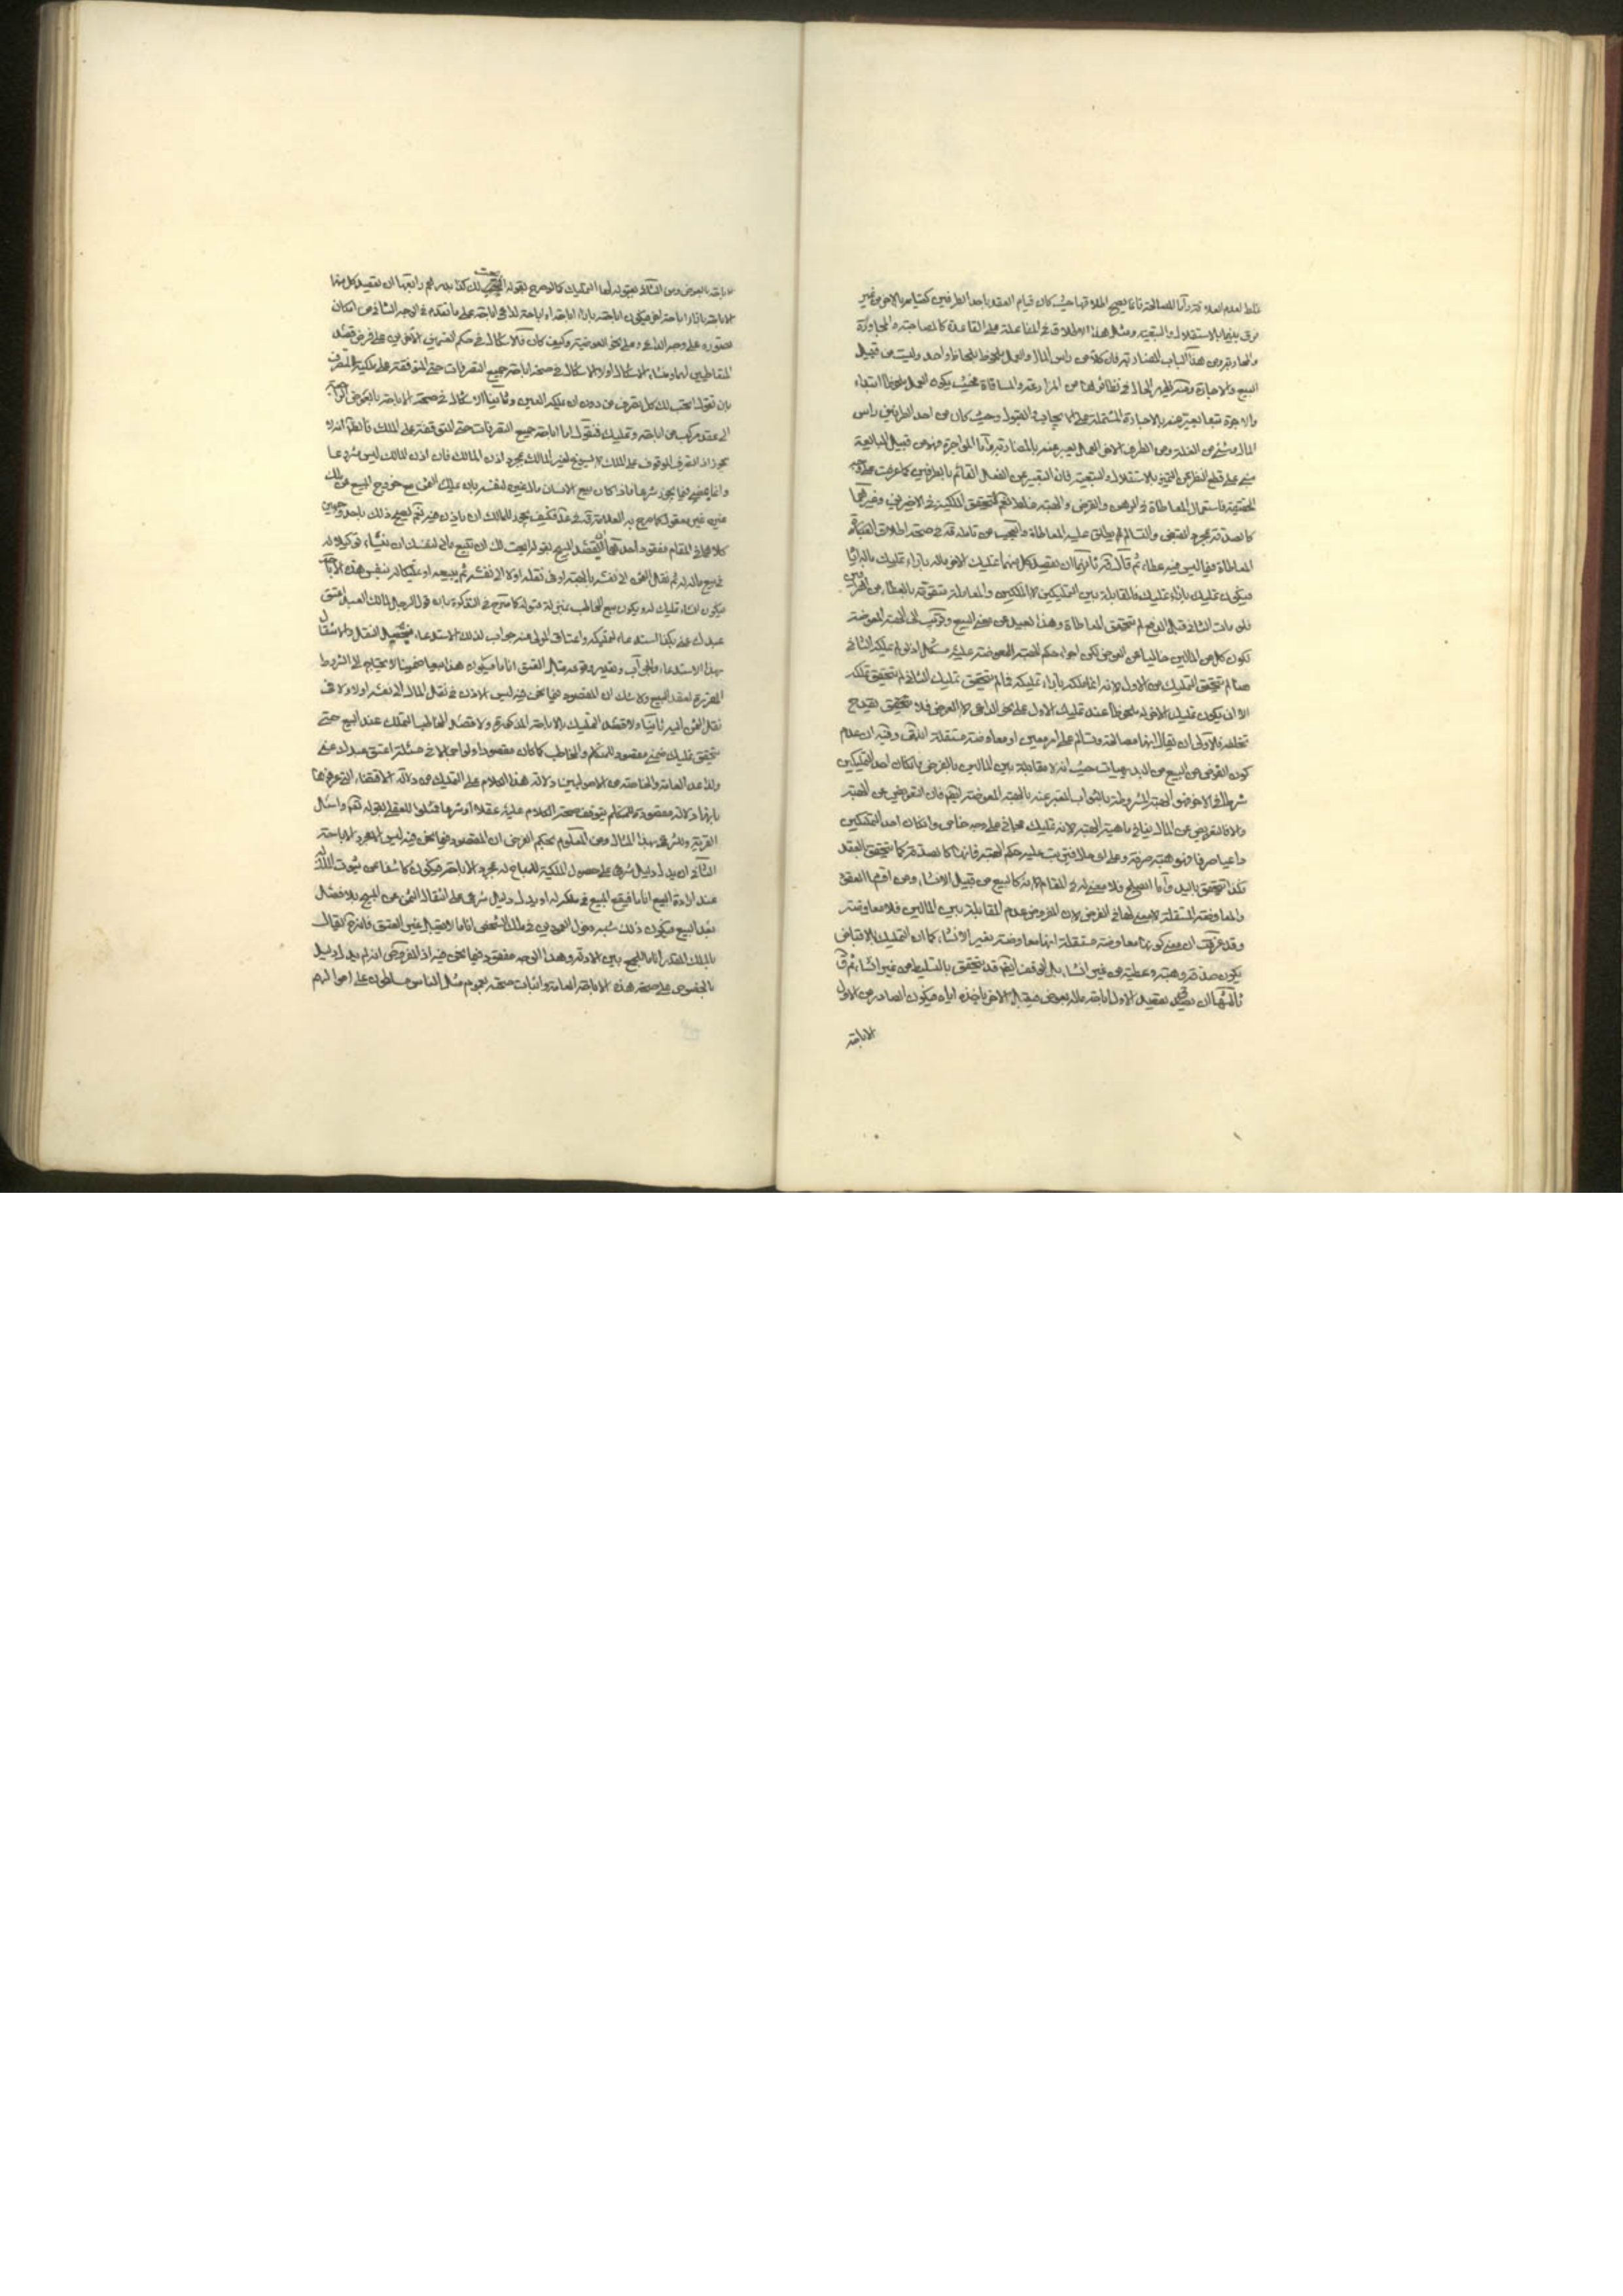 غلط لعدم العلاقة واما المصالحة فانما يصح اطلاقها حيث كان قيام العقد باحد الطرفين كقيامه بالاخر من غير
فرق بينهما بالاستقلال والتبعية ومثل هذا الاطلاق في المفاعلة على القاعدة كالمصاحبة والمجاورة
والمحاربة ومن هذا الباب المضاربة فان كلا من راس المال والعمل ملحوظ بلحاظ واحد وليست من قبيل
البيع والاجارة ومنه يظهر الحال في نظائرها من المزارعة والمساقاة بحيث يكون العمل ملحوظا ابتداء
والاجرة تبعا يعبر عنه بالاجارة المشتملة على الايجاب والقبول وحيث كان من احد الطرفين راس
المال من الطرف الاخر العمل يعبر عنه بالمضاربة واما المواجرة فهو من قبيل المبايعة
مبني على قطع النظر عن التميز بالاستقلال والتبعية فان التعبير عن الفعل القائم بالطرفين كما عرفت
الحقيقة فاستعمال المعاطاة في الرهن والقرض والهبة غلط نعم تحقق الملكية في الاخيرين وغيرهما
كالصدقة بمجرد القبض والتسالم لم يطلق عليه المعاطاة والعجب من تامله قده في صحة اطلاق
المعاطاة فيما ليس فيه عطاء ثم قال قده ثانيها ان يقصد كل منهما تمليك الاخر ماله بازاء تمليك ماله اياه
فيكون تمليك بازاء تمليك فالمقابلة بين التمليكين لا الملكين والمعاملة متقومة بالعطاء من الطرفين
فلو مات الثاني قبل الدفع لم تتحقق المعاطاة وهذا بعيد عن معنى البيع وقريب الى الهبة المعوضة
لكون كل من المالين خاليا عن العوض لكن اجراء حكم الهبة المعوضة عليه مشكل اذ لو لم يملكه الثاني
هنا لم يتحقق التمليك من الاول لانه انما ملكه بازاء تمليكه فما لم يتحقق تمليك الثاني لم يتحقق تملكه
الا ان يكون تمليك الاخر له ملحوظا عند تمليك الاول على نحو الداعي لا العوض فلا يقدح
تخلفه فالاولى ان يقال انها مصالحة وتسالم على امر معين او معاوضة مستقلة انتهى وفيه ان عدم
كون الفرض من البيع من البديهيات حيث انه لا مقابلة بين المالين بالفرض فان كان احد التمليكين
شرطا في الاخر فهو الهبة المشروطة بالثواب المعبر عنه بالهبة المعوضة
والا فالتعويض عن المال ينافي ماهية الهبة لانه تمليك مجاني على وجه خاص وان كان احد التمليكين
داعيا صرفا فهو هبة صرفة وعلى اي حال فيترتب عليه حكم الهبة فانها كالصدقة كما تتحقق بالعقد
كذا تتحقق باليد واما الصلح فلا معنى له في المقام لانه كالبيع من قبيل الانشاء ومن اقسام العقود
والمعاوضة المستقلة لا معنى لها في الفرض لان المفروض عدم المقابلة بين المالين فلا معاوضة
وقد عرفت ان معنى كونها معاوضة مستقلة انها معاوضة بغير الانشاء كما ان التمليك بالاقباض
يكون صدقة وهبة وعطية من غير انشاء بل الوقف ايضا قد يتحقق بالتسليط من غير انشاء ثم قال
ثالثها ان يقصد الاول اباحة ماله بعوض فيقبل الاخر باخذه اياه فيكون الصادر من الاول
الاباحة
الاباحة بالعوض ومن الثاني بقبوله لها التمليك كما لو صرح بقوله ابحت لك كذا بدرهم رابعها ان يقصد كل منهما
الاباحة بازاء اباحة اخرى فيكون اباحة بازاء اباحة او اباحة لداعي اباحة على ما تقدم في الوجه الثاني من امكان
تصوره على وجه الداعي وعلى نحو العوضية وكيف كان فالاشكال في حكم القسمين الاخيرين على فرض قصد
المتعاطيين لهما ومنشاء الاشكال اولا الاشكال في صحة اباحة جميع التصرفات حتى المتوقفة على ملكية المتصرف
بان تقول ابحت لك كل تصرف من دون ان يملكه العين وثانيا الاشكال في صحة الاباحة بالعوض الراجعة
الى عقد مركب من اباحة وتمليك فنقول اما اباحة جميع التصرفات حتى المتوقفة على الملك فالظاهر انه لا
يجوز اذ التصرف الموقوف على الملك لا يسوغ لغير المالك بمجرد اذن المالك فان اذن المالك ليس مشرعا
وانما يمضي فيما يجوز شرعا فاذا كان بيع الانسان مال غيره لنفسه بان يملك الثمن مع خروج المبيع من ملك
غيره غير معقول كما صرح به العلامة قده في عد فكيف يجوز للمالك ان ياذن فيه نعم يصح ذلك باحد وجهين
كلاهما في المقام مفقود احدهما ان يقصد المبيح بقوله ابحت لك ان تبيع مالي لنفسك ان ينشاء توكيلا له
في بيع ماله له ثم نقل الثمن الى نفسه بالهبة او في نقله اولا الى نفسه ثم بيعه او تمليكا له بنفس هذه الاباحة
فيكون انشاء تمليك له ويكون بيع المخاطب بمنزلة قبوله كما صرح في التذكرة بان قول الرجل لمالك العبد اعتق
عبدك عني بكذا استدعاء لتمليكه واعتاق المولى عنه جواب لذلك الاستدعاء فيحصل النقل والانتقال
بهذا الاستدعاء والجواب ويقدر وقوعه قبل العتق انا ما فيكون هذا بيعا ضمنيا لا يحتاج الى الشروط
المقررة لعقد البيع ولا شك ان المقصود فيما نحن فيه ليس الاذن في نقل المال الى نفسه اولا ولا في
نقل الثمن اليه ثانيا ولا قصد التمليك بالاباحة المذكورة ولا قصد المخاطب التملك عند البيع حتى
يتحقق تمليك ضمني مقصود للمتكلم والمخاطب كما كان مقصودا ولو اجمالا في مسئلة اعتق عبدك عني
ولذا عد العامة والخاصة من الاصوليين دلالة هذا الكلام على التمليك من دلالة الاقتضاء التي عرفوها
بانها دلالة مقصودة للمتكلم يتوقف صحة الكلام عليه عقلا او شرعا فمثلوا للعقلي بقوله تعالى واسئل
القرية وللشرعي بهذا المثال ومن المعلوم بحكم الفرض ان المقصود فيما نحن فيه ليس الا مجرد الاباحة
الثاني ان يدل دليل شرعي على حصول الملكية للمباح له بمجرد الاباحة فيكون كاشفا عن ثبوت الملك له
عند ارادة البيع انا ما فيقع البيع في ملكه له او يدل دليل شرعي على انتقال الثمن عن المبيح بلا فصل
بعد البيع فيكون ذلك شبه دخول العمودين في ملك الشخص انا ما لا يقبل غير العتق فانه ح يقال
بالملك المقدر انا ما للجمع بين الادلة وهذا الوجه مفقود فيما نحن فيه اذ المفروض انه لم يدل دليل
بالخصوص على صحة هذه الاباحة العامة واثبات صحته بعموم مثل الناس مسلطون على اموالهم